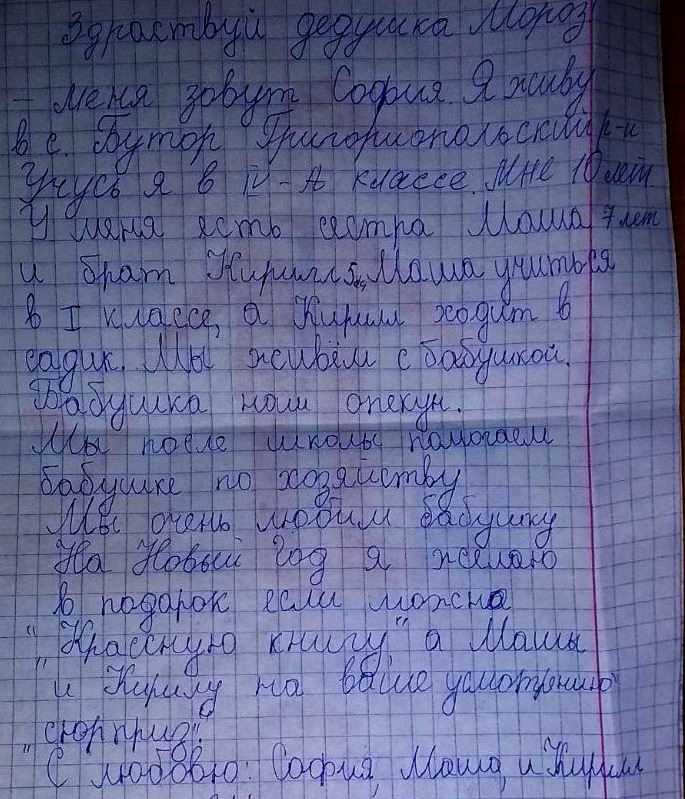 Здраствуй дедушка Мороз
- меня зовут София. Я живу
в с. Бутор Григориопольский р-н
Учусь я в IV-А классе. Мне 10 лет
У меня есть сестра Маша 7 лет
и брат Кирилл 5 Маша учиться
в I классе, а Кирилл ходит в
садик. Мы живём с бабушкой.
Бабушка наш опекун.
Мы после школы помогаем
бабушке по хозяйству
Мы очень любим бабушку
На Новый Год я желаю
в подарок если можно
"Крассную книгу" а Машы
и Кирилу на ваше усмотрению
"сюрприз".
С любовю: София, Маша, и Кирилл